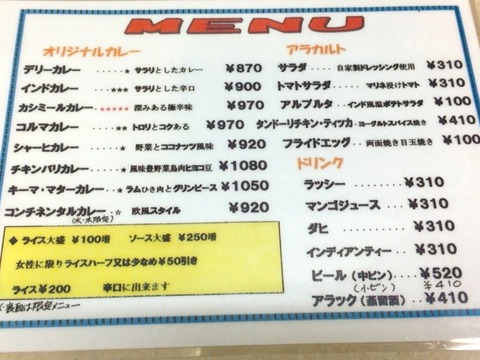 MENU
オリジナルカレー
デリーカレー ‥‥‥★ サラリとしたカレー ¥870
インドカレー ‥‥★★★ サラリとした辛口 ¥900
カシミールカレー ★★★★★ 深みある極辛味 ¥970
コルマカレー ‥‥★★ トロリとコクある ¥970
シャーヒカレー ‥★ 野菜とココナッツ風味 ¥920
チキンバリカレー ★ 風味豊野菜鳥肉ヒヨコ豆 ¥1080
キーマ・マターカレー★ ラムひき肉とグリンピース ¥1050
コンチネンタルカレー☆ 欧風スタイル ¥920
◆ ライス大盛 ¥100増 ソース大盛 ¥250増
女性に限りライスハーフ又は少なめ¥50引き
ライス¥200 辛口に出来ます
アラカルト
サラダ ‥‥ 自家製ドレッシング使用 ¥310
トマトサラダ ‥‥ マリネ漬けトマト ¥310
アルブルタ ‥インド風温ポテトサラダ ¥100
タンドーリチキン・ティッカ ‥ヨーグルトスパイス焼き ¥410
フライドエッグ ‥‥両面焼き目玉焼き ¥100
ドリンク
ラッシー ‥‥‥‥¥310
マンゴジュース ‥‥¥310
ダヒ ‥‥‥‥¥310
インディアンティー‥¥310
ビール(中ビン)‥¥520
(小ビン) ¥410
アラック(蒸留酒)‥¥410